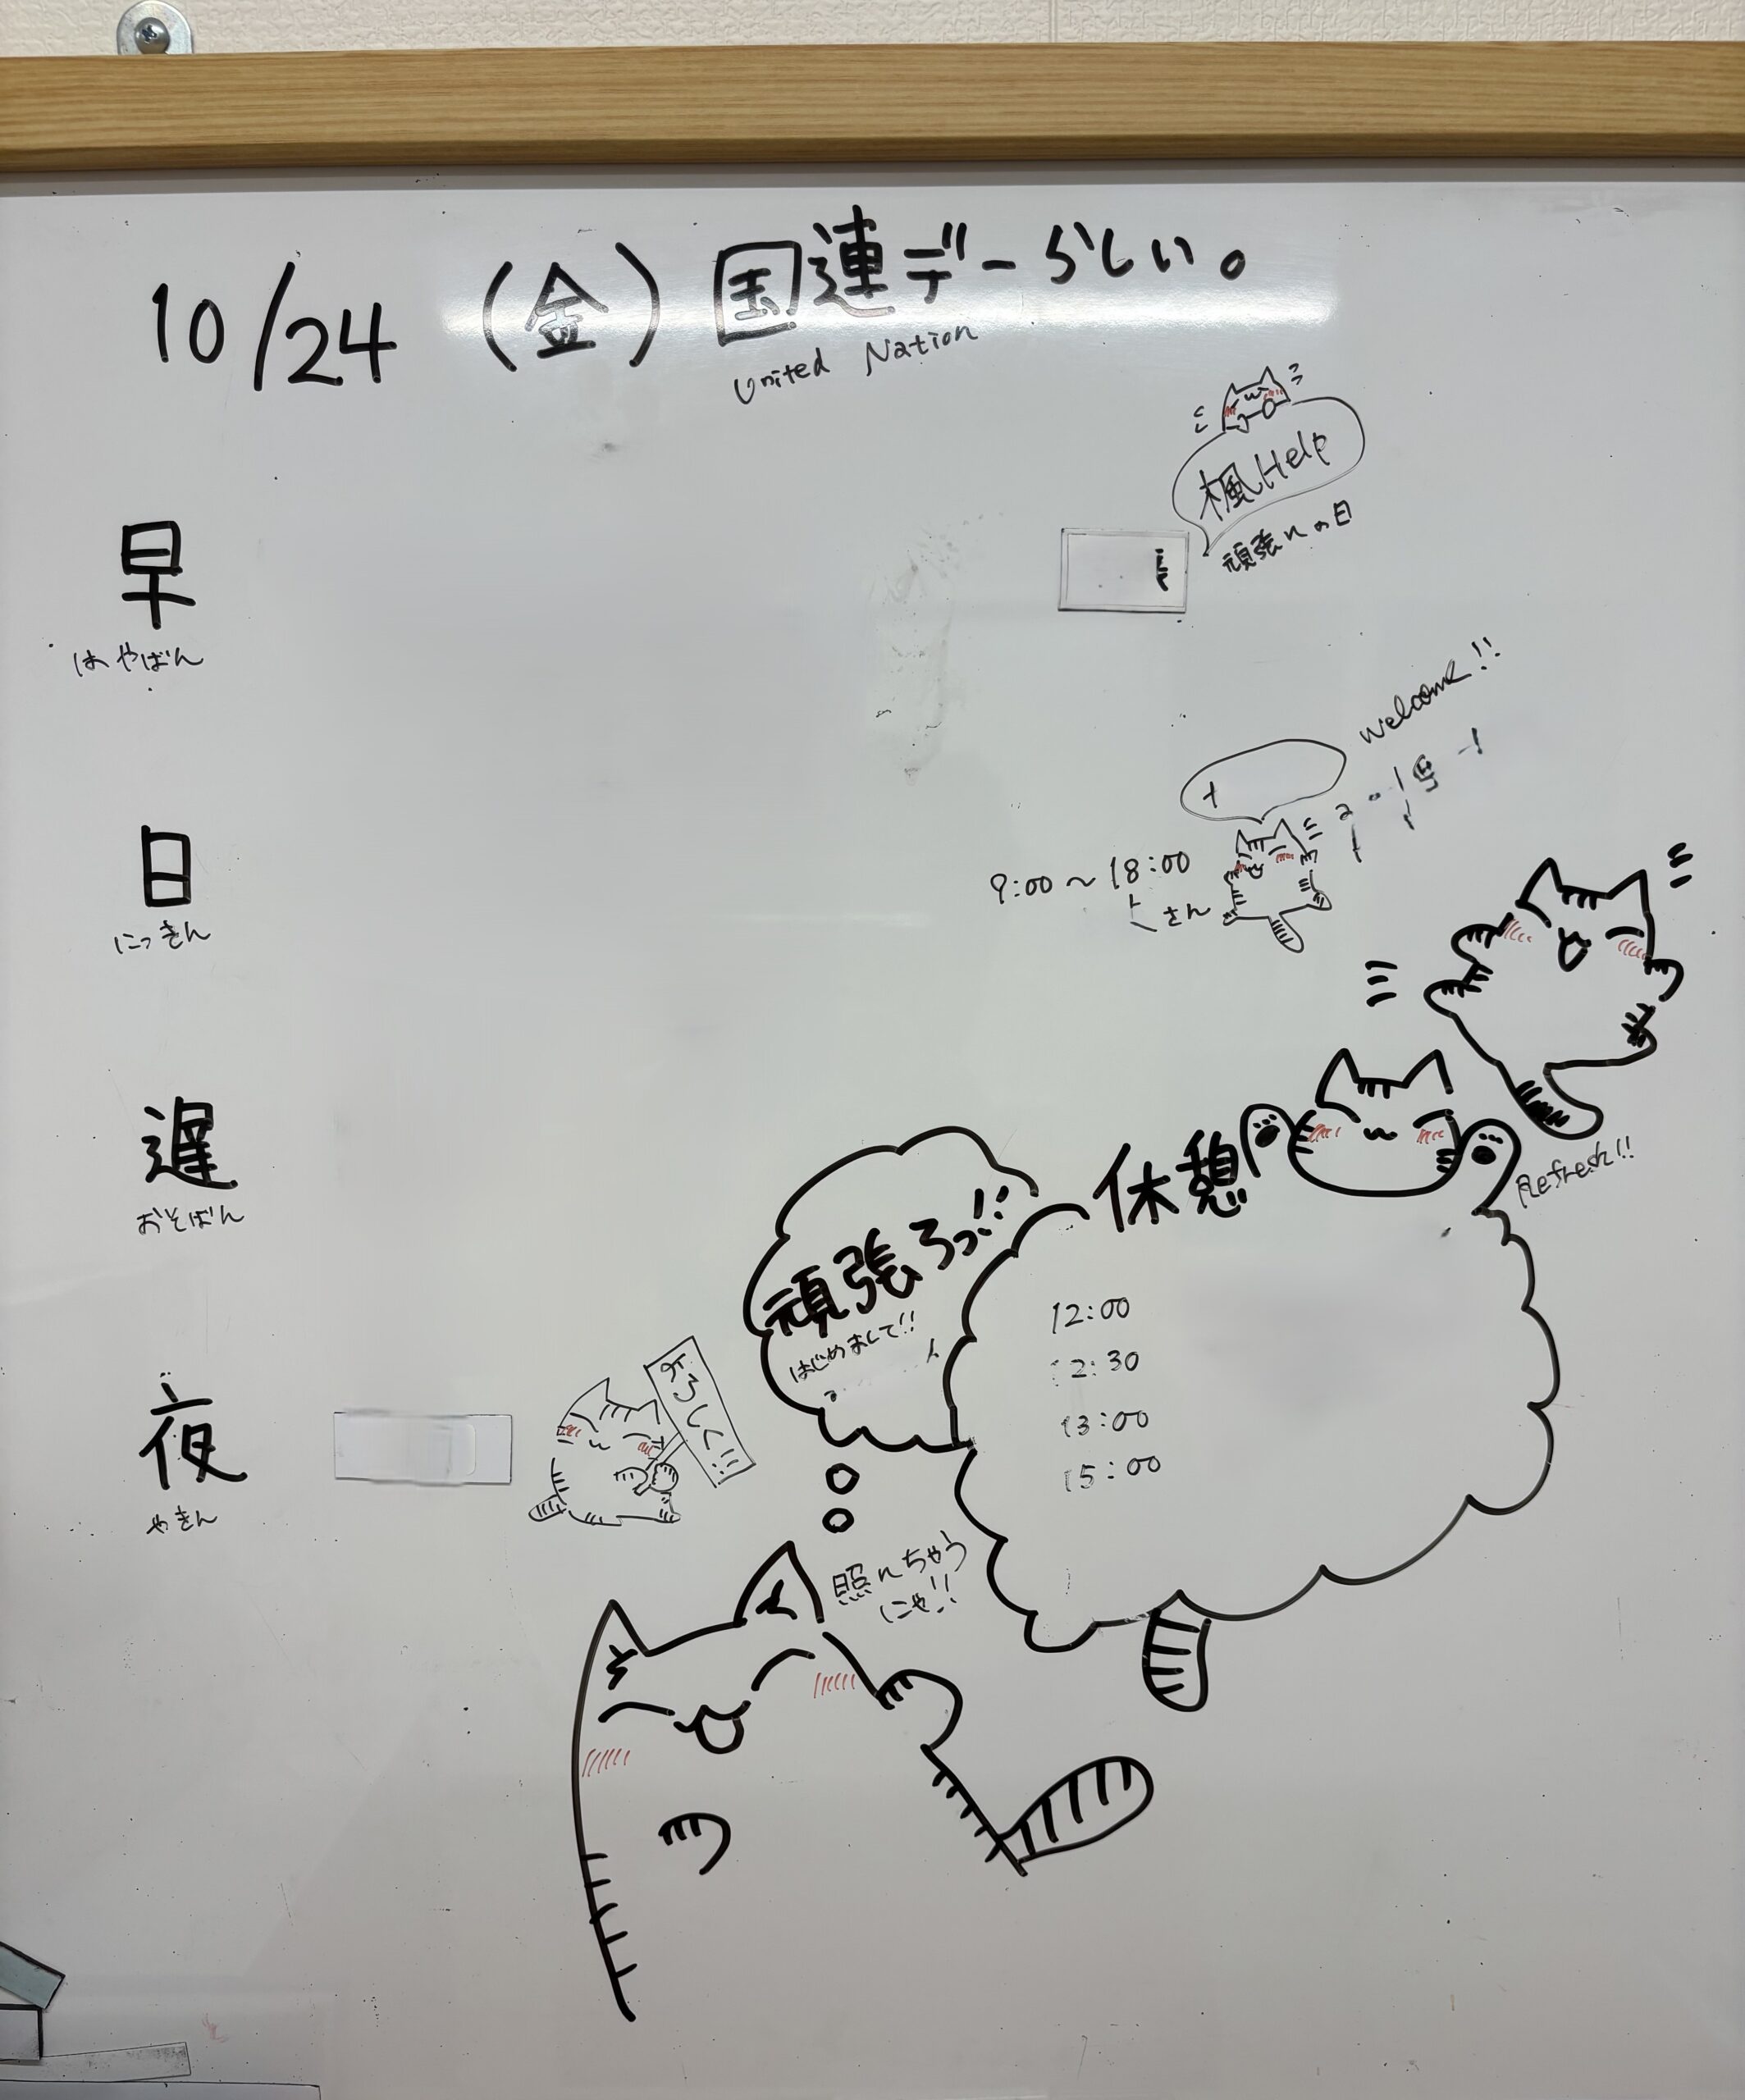 10/24 (金) 国連デーらしい。
United Nation
楓Help
頑張れの日
早
はやばん
welcome!!
日
にっきん
9:00～18:00
さん
遅
おそばん
休憩
Refresh!!
頑張ろっ!!
はじめまして!!
12:00
12:30
13:00
15:00
夜
やきん
よろしく!!
照れちゃう
にゃ!!